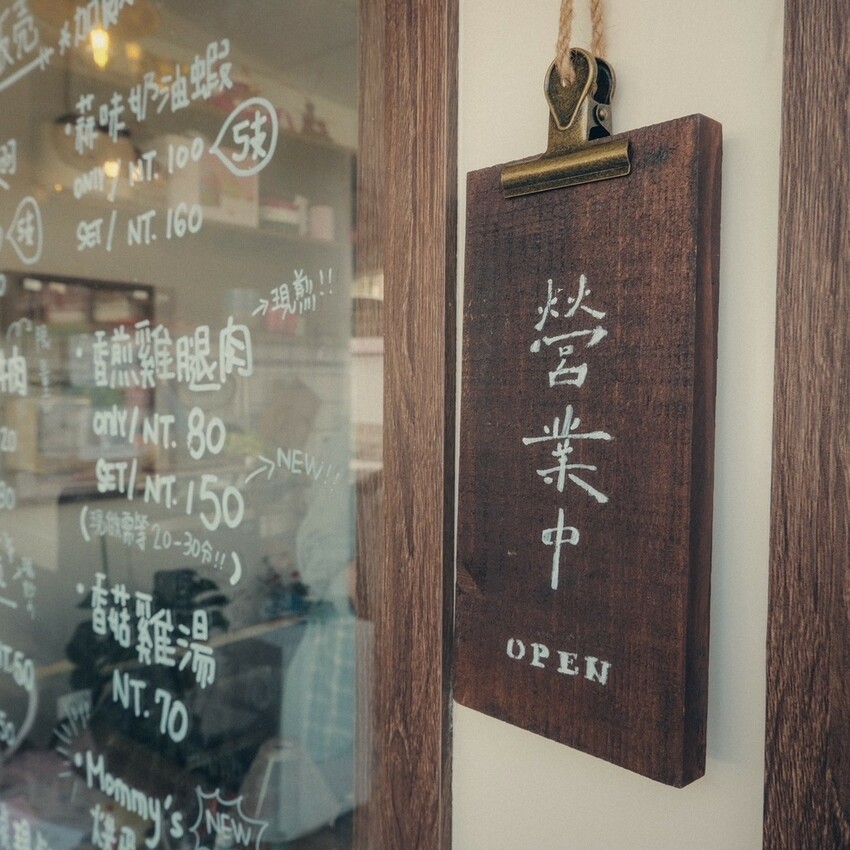 加飯
・蒜味奶油蝦
ONLY/ NT. 100 5支
SET/ NT. 160
→現煎!!
・香煎雞腿肉
ONLY/ NT. 80
SET/ NT. 150 →NEW!!
(現做需等20-30分!!)
・香菇雞湯
NT. 70
・Mommy's
NEW
營業中
OPEN